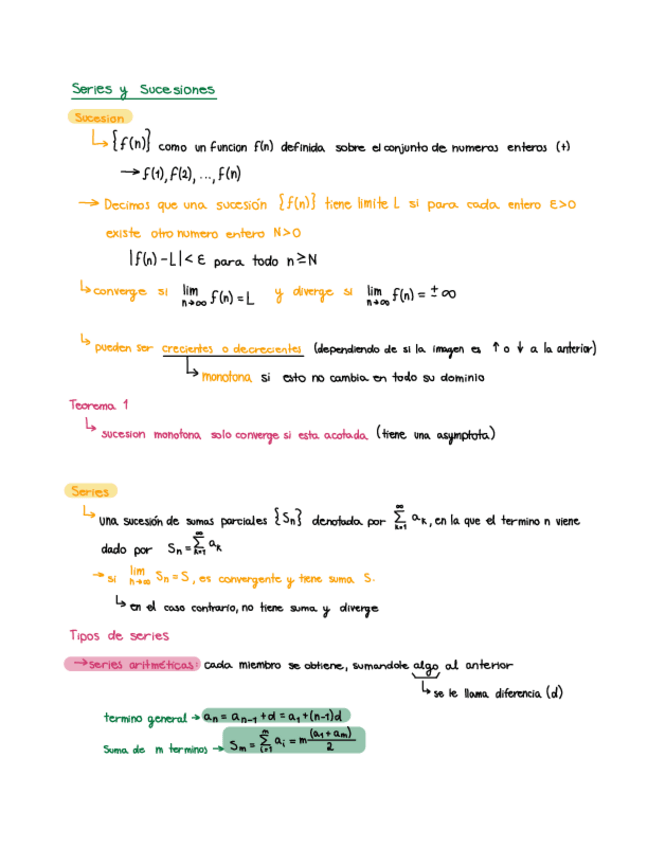 Series y Sucesiones
Sucesion
↳ {f(n)} como un funcion f(n) definida sobre el conjunto de numeros enteros (+)
→ f(1), f(2), ..., f(n)
→ Decimos que una sucesión {f(n)} tiene limite L si para cada entero Ɛ>0
existe otro numero entero N>0
|f(n) - L| < Ɛ para todo n ≥ N
↳ converge si lim n→∞ f(n) = L y diverge si lim n→∞ f(n) = ± ∞
↳ pueden ser crecientes o decrecientes (dependiendo de si la imagen es ↑ o ↓ a la anterior)
↳ monotona si esto no cambia en todo su dominio
Teorema 1
↳ sucesion monotona solo converge si esta acotada (tiene una asymptota)
Series
↳ una sucesión de sumas parciales {Sn} denotada por ∞ Σ k=1 ak, en la que el termino n viene
dado por Sn = ∞ Σ k=1 ak
→ si lim n→∞ Sn = S, es convergente y tiene suma S.
↳ en el caso contrario, no tiene suma y diverge
Tipos de series
→ series aritméticas: cada miembro se obtiene, sumandole algo al anterior
↳ se le llama diferencia (d)
termino general → an = an-1 + d = a1 + (n-1)d
Suma de m terminos → Sm = m Σ i=1 ai = m (a1 + am) / 2